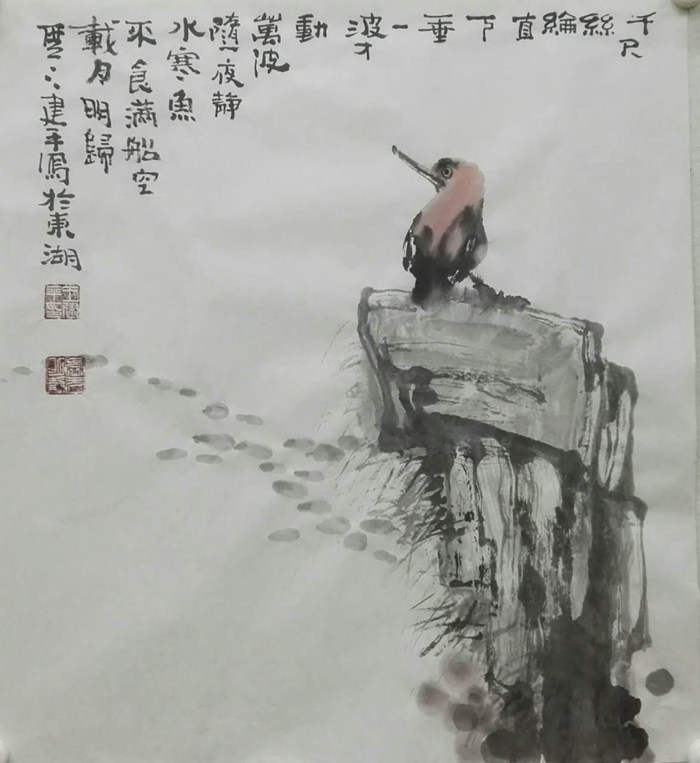 千尺
絲
綸
直
下
垂
一
波才
動
萬波
隨夜静
水寒魚
不食满船空
載月明歸
建平寫於東湖